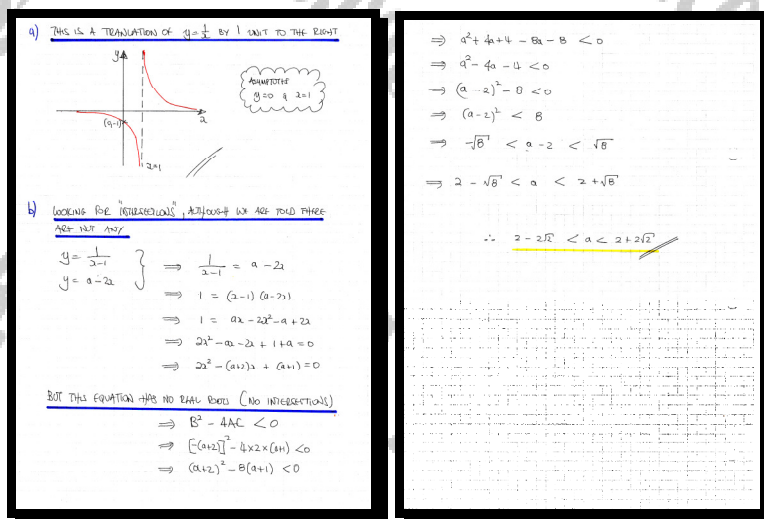 a) THIS IS A TRANSLATION OF y=1/x BY 1 UNIT TO THE RIGHT
y
ASYMPTOTES
y=0 & x=1
(0,-1)
x
x=1
b) LOOKING FOR "INTERSECTIONS", ALTHOUGH WE ARE TOLD THERE
ARE NOT ANY
y = 1/(x-1)
y = a-2x
⇒ 1/(x-1) = a - 2x
⇒ 1 = (x-1)(a-2x)
⇒ 1 = ax - 2x² - a + 2x
⇒ 2x² - ax - 2x + 1 + a = 0
⇒ 2x² - (a+2)x + (a+1) = 0
BUT THIS EQUATION HAS NO REAL ROOTS (NO INTERSECTIONS)
⇒ B² - 4AC < 0
⇒ [-(a+2)]² - 4×2×(a+1) < 0
⇒ (a+2)² - 8(a+1) < 0
⇒ a² + 4a + 4 - 8a - 8 < 0
⇒ a² - 4a - 4 < 0
⇒ (a-2)² - 8 < 0
⇒ (a-2)² < 8
⇒ -√8 < a - 2 < √8
⇒ 2 - √8 < a < 2 + √8
∴ 2 - 2√2 < a < 2 + 2√2